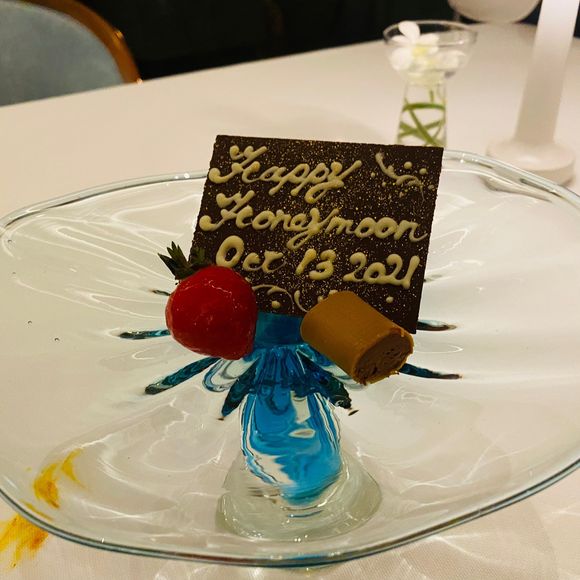 Happy
Honeymoon
Oct 13 2021